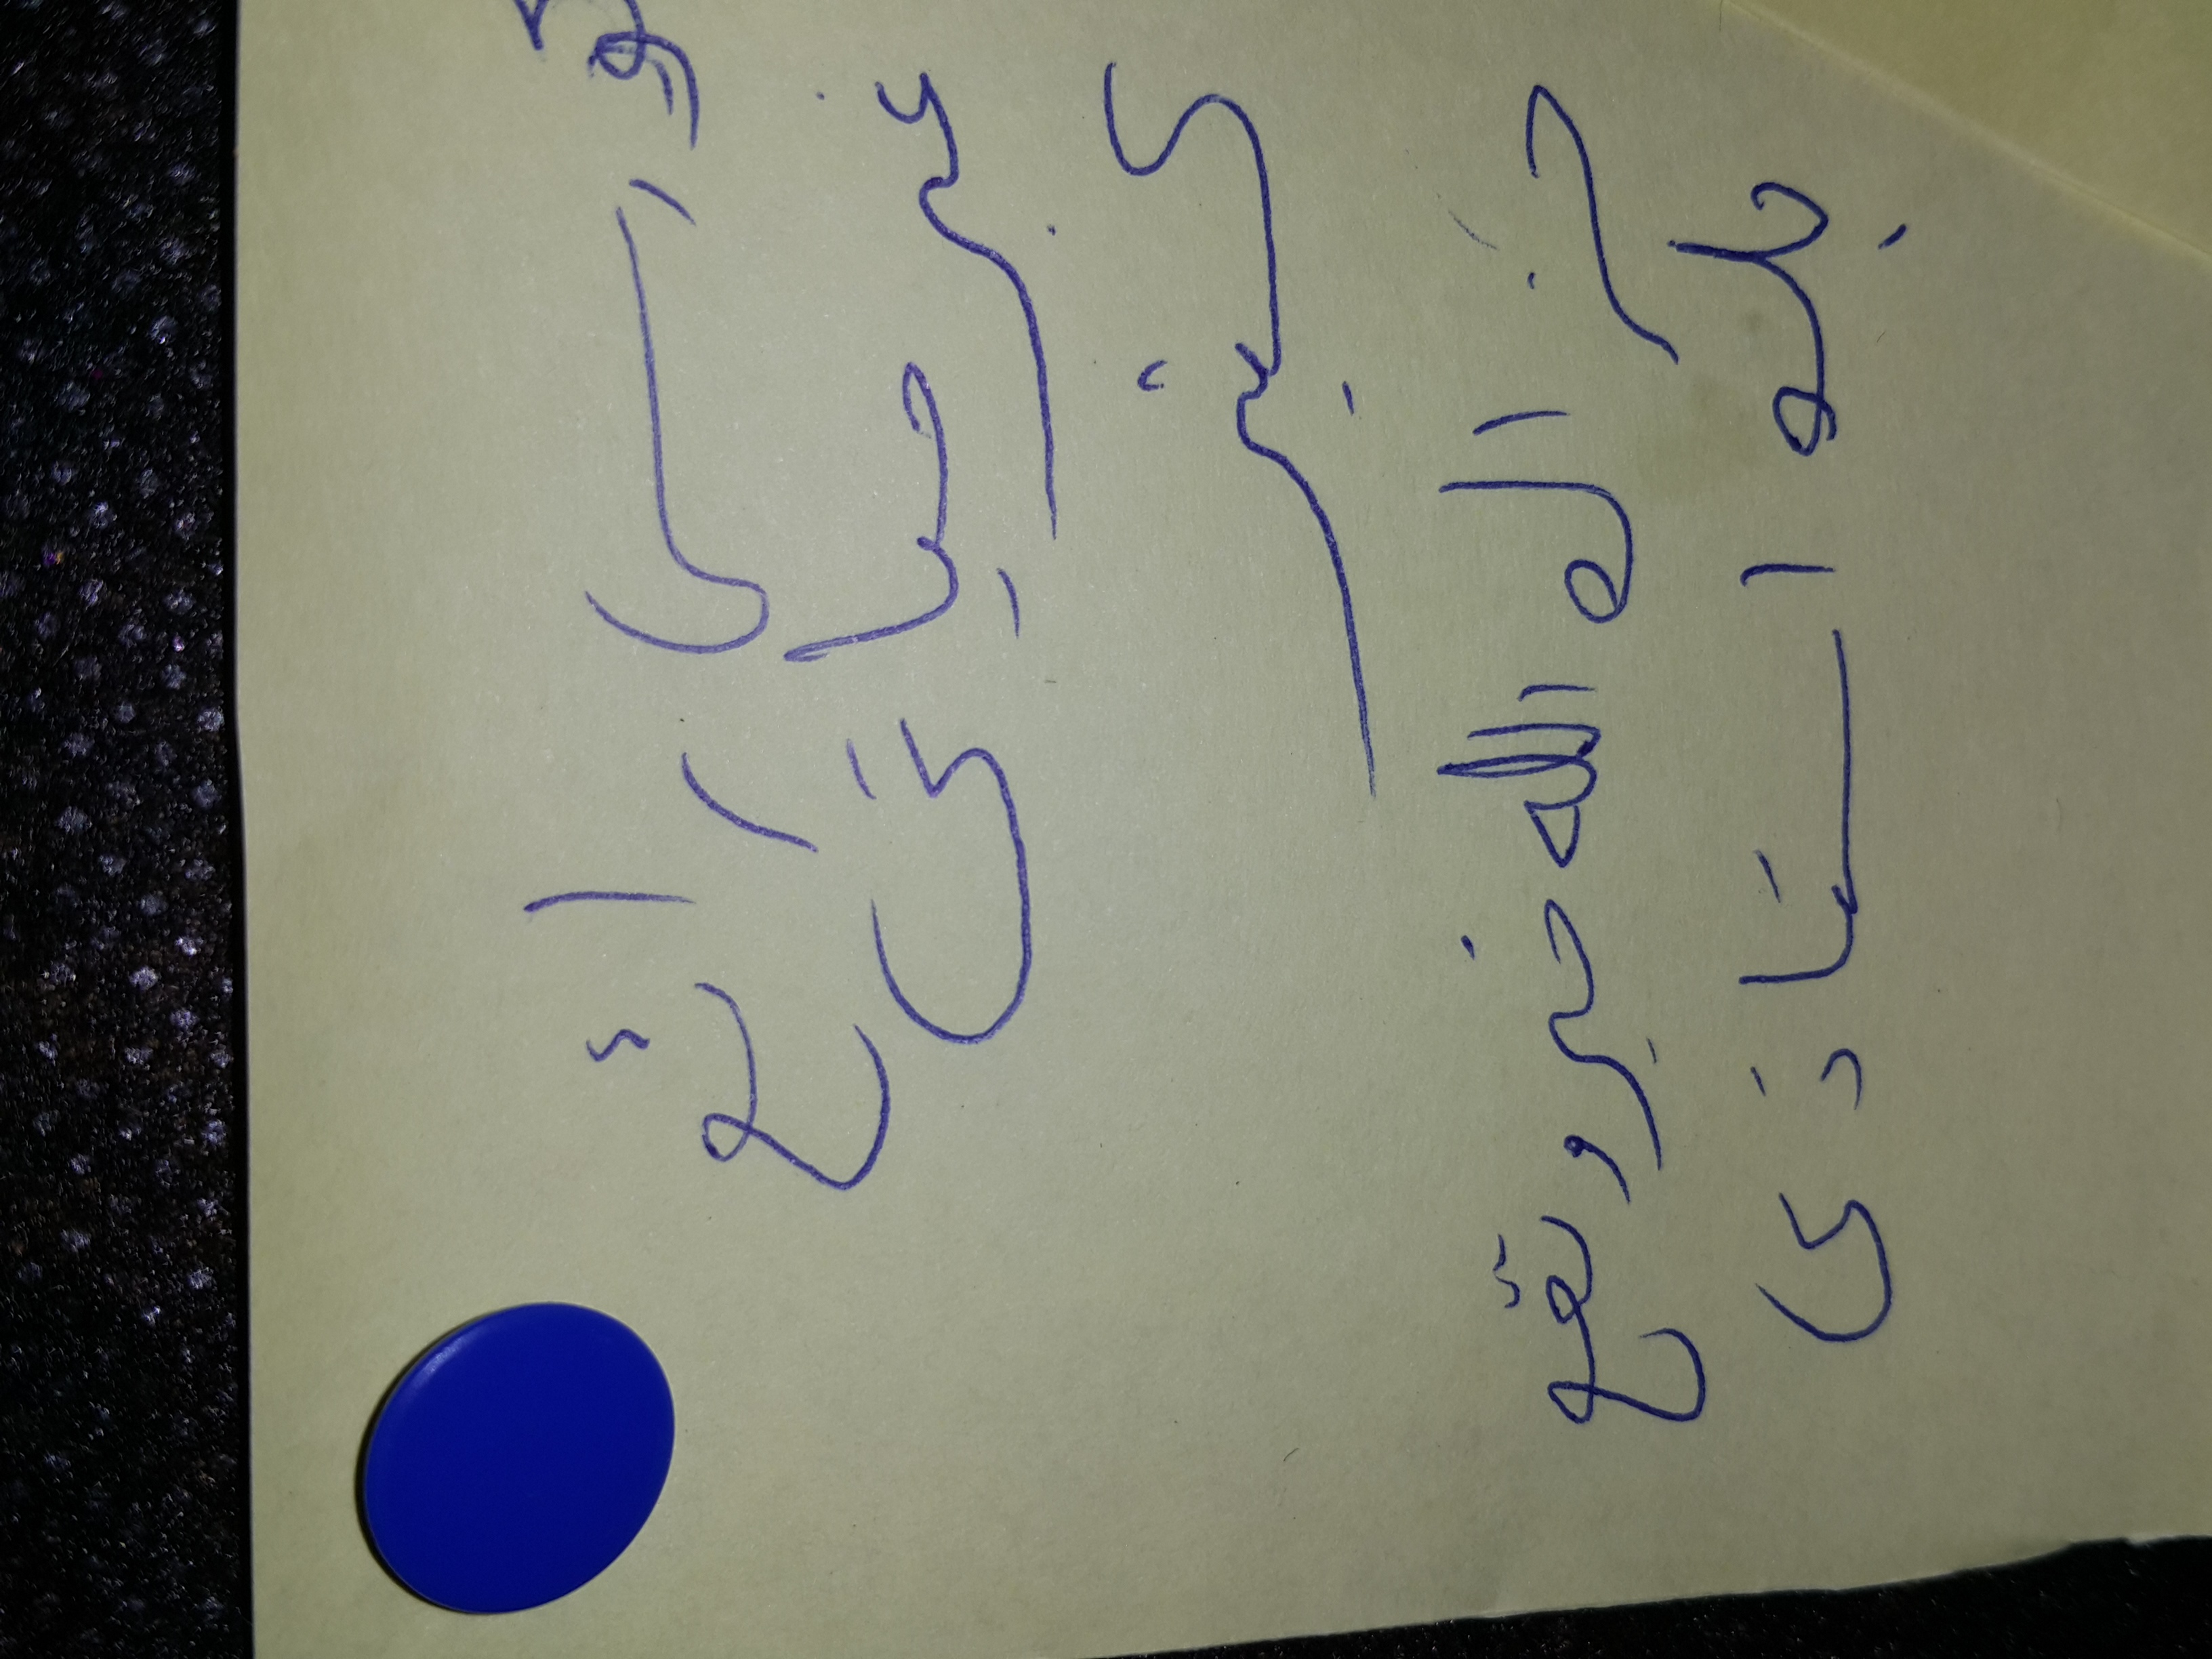 كورس رائع
غير حياتى
كتير
جزاك الله خير ونفع
بك استاذى